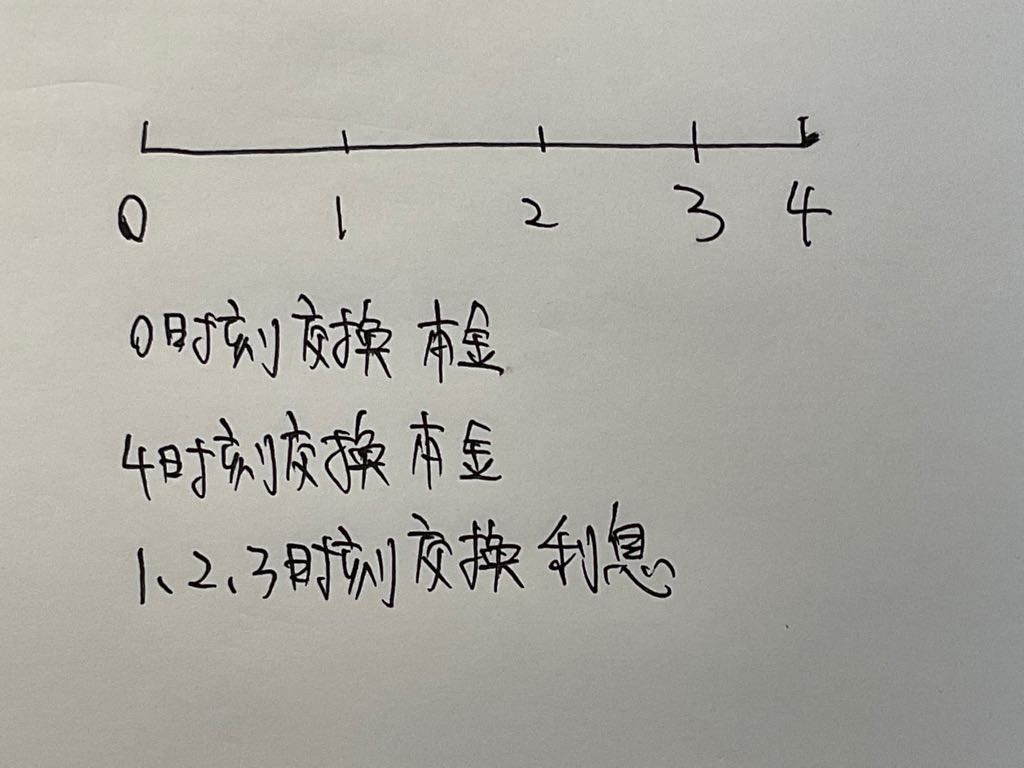 0 1 2 3 4
0时刻交换本金
4时刻交换本金
1、2、3时刻交换利息